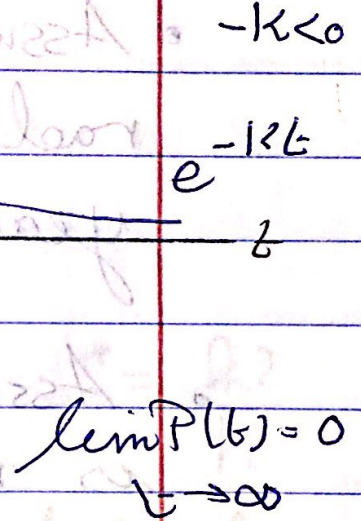 -K<0
e^{-Kt}
t
lim P(t) = 0
t→∞